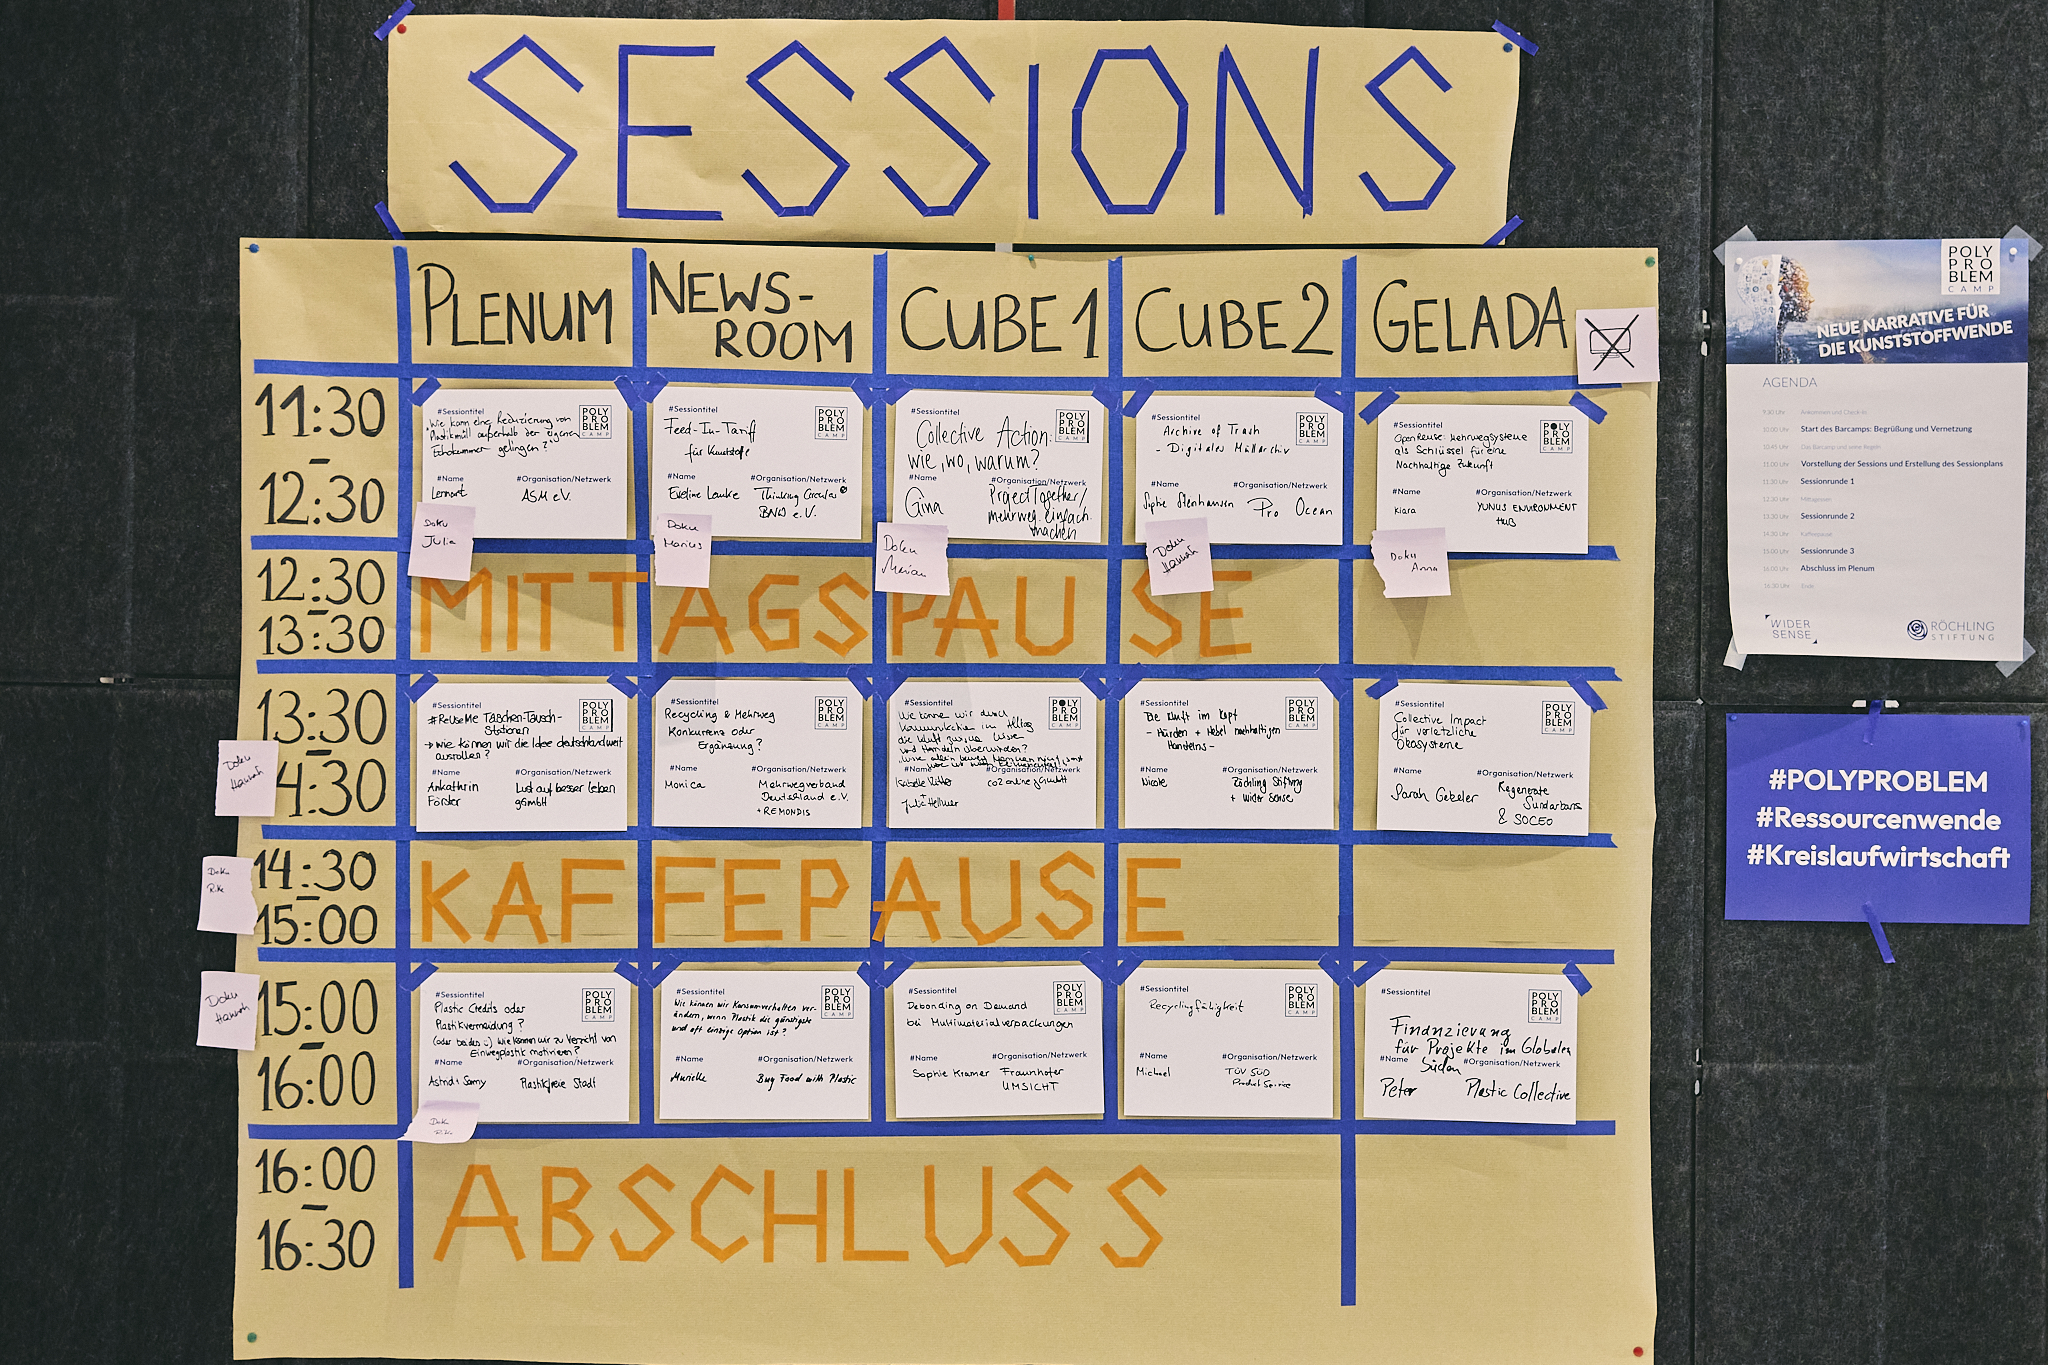 SESSIONS
PLENUM
NEWS-
ROOM
CUBE 1
CUBE 2
GELADA
11:30
-
12:30
#Sessiontitel
POLY
PRO
BLEM
CAMP
Wie kann eine Reduzierung von
Plastikmüll außerhalb der eigenen
Echokammer gelingen?
#Name
#Organisation/Netzwerk
Lennart
ASM e.V.
Doku
Julia
#Sessiontitel
POLY
PRO
BLEM
CAMP
Feed-In-Tariff
für Kunststoffe
#Name
#Organisation/Netzwerk
Eveline Lemke
Thinking Circular
BNW e.V.
Doku
Marius
#Sessiontitel
POLY
PRO
BLEM
CAMP
Collective Action:
wie, wo, warum?
#Name
#Organisation/Netzwerk
Gina
ProjectTogether/
mehrweg.einfach.
machen
Doku
#Sessiontitel
POLY
PRO
BLEM
CAMP
Archive of Trash
- Digitales Müllarchiv
#Name
#Organisation/Netzwerk
Pro Ocean
Doku
Hannah
#Sessiontitel
POLY
PRO
BLEM
CAMP
Open Reuse: Mehrwegsysteme
als Schlüssel für eine
Nachhaltige Zukunft
#Name
#Organisation/Netzwerk
Kiara
YUNUS ENVIRONMENT
HUB
Doku
Anna
12:30
-
13:30
MITTAGSPAUSE
13:30
-
14:30
Doku
Hannah
#Sessiontitel
POLY
PRO
BLEM
CAMP
#ReUseMe Taschen-Tausch-
Stationen
→ wie können wir die Idee deutschlandweit
ausrollen?
#Name
#Organisation/Netzwerk
Annkathrin
Förder
Lust auf besser leben
gGmbH
#Sessiontitel
POLY
PRO
BLEM
CAMP
Recycling & Mehrweg
Konkurrenz oder
Ergänzung?
#Name
#Organisation/Netzwerk
Monica
Mehrwegverband
Deutschland e.V.
+ REMONDIS
#Sessiontitel
POLY
PRO
BLEM
CAMP
Wie können wir durch
Kommunikation im Alltag
die Kluft zwischen Wissen
und Handeln überwinden?
#Name
#Organisation/Netzwerk
co2online gGmbH
#Sessiontitel
POLY
PRO
BLEM
CAMP
Die Kluft im Kopf
- Hürden + Hebel nachhaltigen
Handelns -
#Name
#Organisation/Netzwerk
Nicole
Röchling Stiftung
+ Wider Sense
#Sessiontitel
POLY
PRO
BLEM
CAMP
Collective Impact
für verletzliche
Ökosysteme
#Name
#Organisation/Netzwerk
Sarah
Regenerate
Sundarbans
& SOCEO
14:30
-
15:00
Doku
KAFFEPAUSE
15:00
-
16:00
Doku
Hannah
#Sessiontitel
POLY
PRO
BLEM
CAMP
Plastic Credits oder
Plastikvermeidung?
(oder beides :) Wie können wir zu Verzicht von
Einwegplastik motivieren?
#Name
#Organisation/Netzwerk
Plastikfreie Stadt
#Sessiontitel
POLY
PRO
BLEM
CAMP
Wie können wir Konsumverhalten ver-
ändern, wenn Plastik die günstigste
und oft einzige Option ist?
#Name
#Organisation/Netzwerk
Murielle
Buy Food with Plastic
#Sessiontitel
POLY
PRO
BLEM
CAMP
Debonding on Demand
bei Multimaterialverpackungen
#Name
#Organisation/Netzwerk
Sophie Kramer
Fraunhofer
UMSICHT
#Sessiontitel
POLY
PRO
BLEM
CAMP
Recyclingfähigkeit
#Name
#Organisation/Netzwerk
Michael
TÜV SÜD
Product Service
#Sessiontitel
POLY
PRO
BLEM
CAMP
Finanzierung
für Projekte im Globalen
Süden
#Name
#Organisation/Netzwerk
Peter
Plastic Collective
16:00
-
16:30
ABSCHLUSS
POLY
PRO
BLEM
CAMP
NEUE NARRATIVE FÜR
DIE KUNSTSTOFFWENDE
AGENDA
9.30 Uhr Ankommen und Check-In
10.00 Uhr Start des Barcamps: Begrüßung und Vernetzung
10.45 Uhr Das Barcamp und seine Regeln
11.00 Uhr Vorstellung der Sessions und Erstellung des Sessionplans
11.30 Uhr Sessionrunde 1
12.30 Uhr Mittagessen
13.30 Uhr Sessionrunde 2
14.30 Uhr Kaffeepause
15.00 Uhr Sessionrunde 3
16.00 Uhr Abschluss im Plenum
16.30 Uhr Ende
WIDER
SENSE
RÖCHLING
STIFTUNG
#POLYPROBLEM
#Ressourcenwende
#Kreislaufwirtschaft